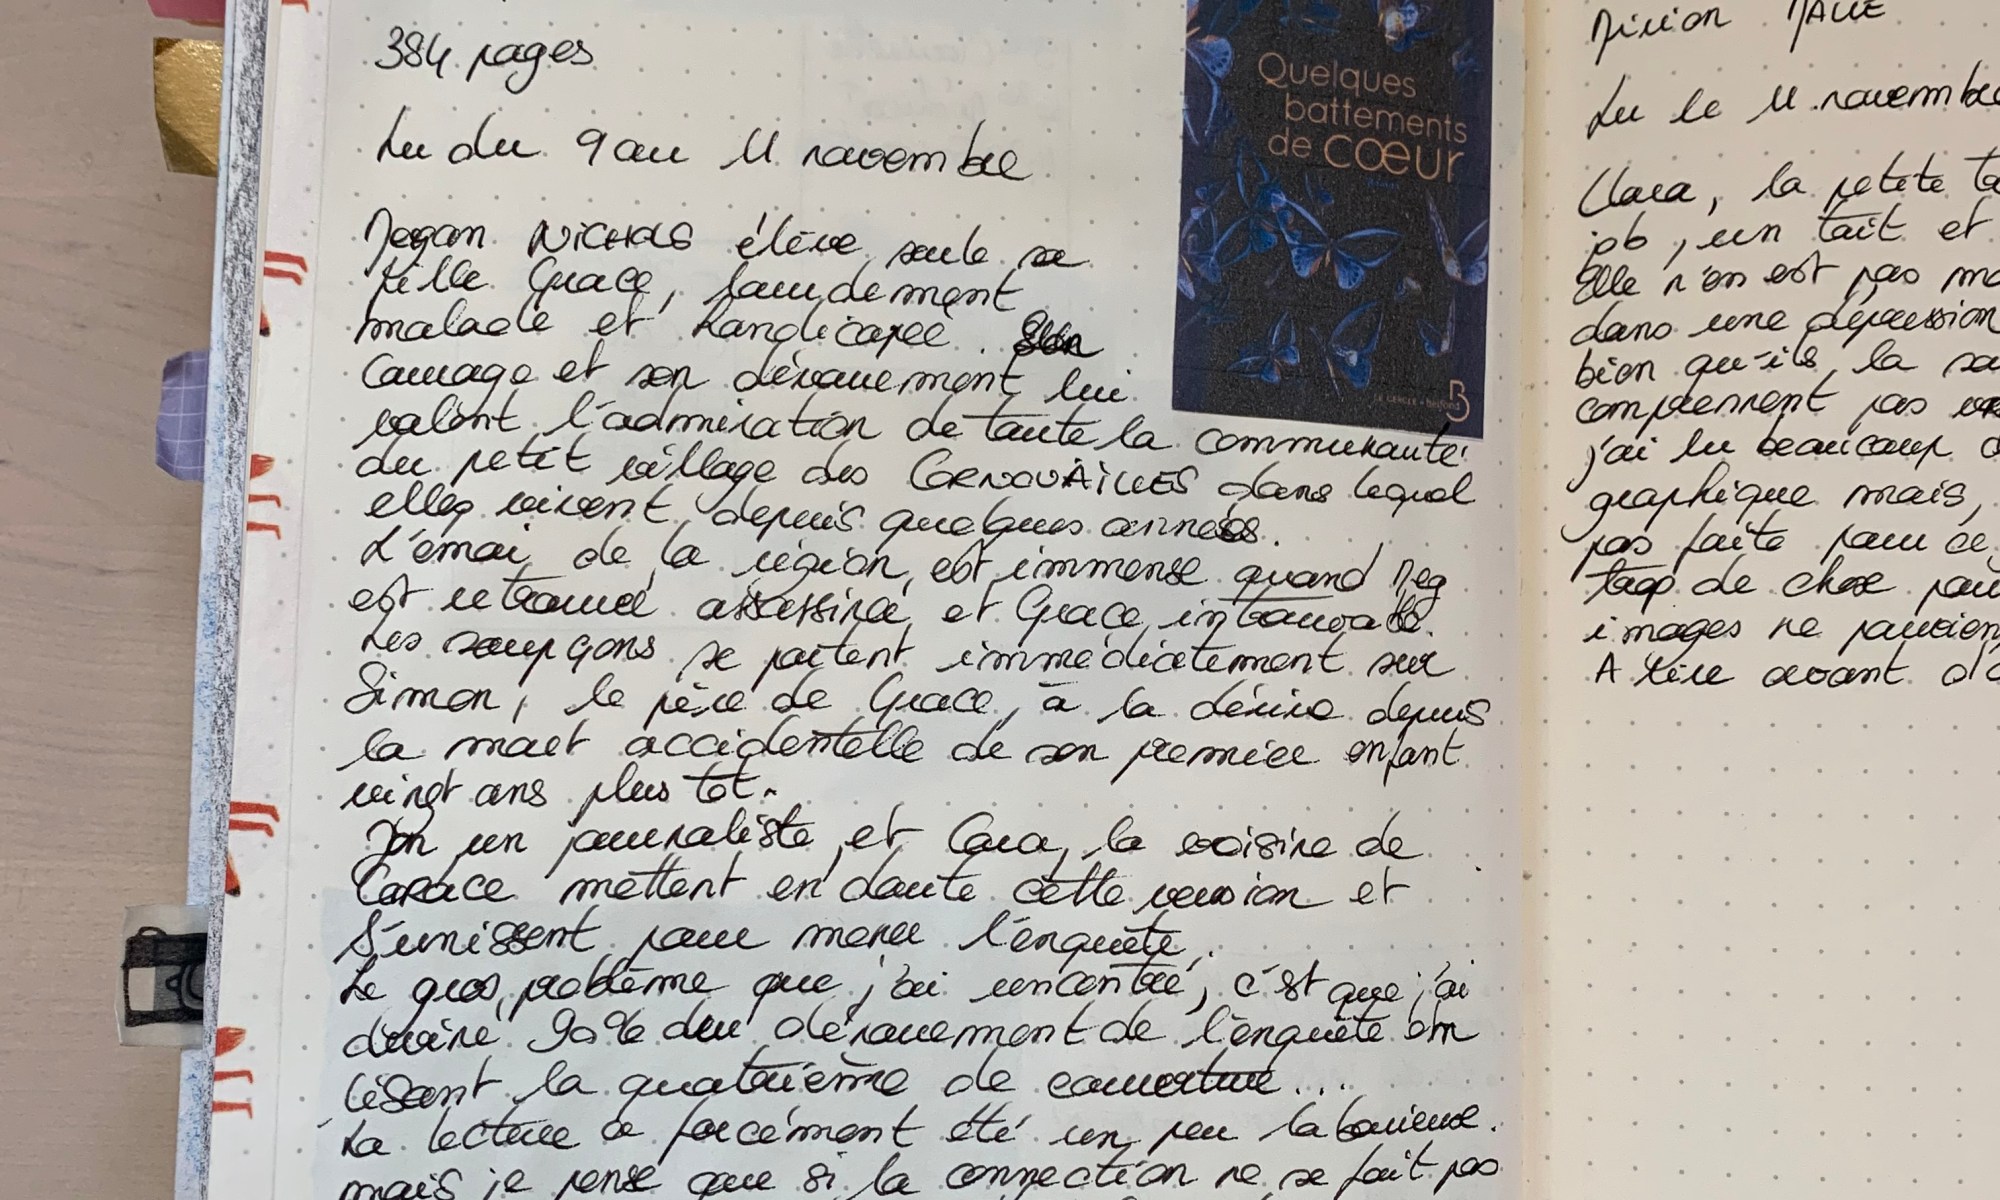 384 pages
Lu du 9 au 11 novembre
Quelques
battements
de cœur
Megan NICHOLS élève seule sa
fille Grace, lourdement
malade et handicapée. Son
courage et son dévouement lui
valent l'admiration de toute la communauté
du petit village des CORNOUAILLES dans lequel
elles vivent depuis quelques années.
L'émoi de la région est immense quand Meg
est retrouvé assassiné et Grace introuvable.
Les soupçons se portent immédiatement sur
Simon, le père de Grace, à la dérive depuis
la mort accidentelle de son premier enfant
vingt ans plus tot.
Jon un journaliste et Cara, la voisine de
Grace mettent en doute cette version et
s'unissent pour mener l'enquête.
Le gros problème que j'ai rencontré, c'est que j'ai
deviné 90% du dénouement de l'enquête en
lisant la quatrième de couverture...
La lecture a forcément été un peu laborieuse.
mais je pense que si la connection ne se fait pas
LE CERCLE • belfond
Lu le 11 novembre
Clara, la petite
job, un toit et
Elle n'en est pas
dans une dépression
bien qu'ils la
comprennent pas
j'ai lu beaucoup
graphique mais,
pas faite pour ce
trop de chose pour
images ne
A lire avant